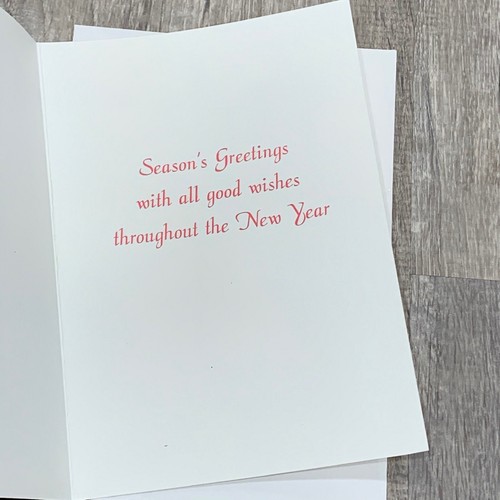 Season's Greetings
with all good wishes
throughout the New Year